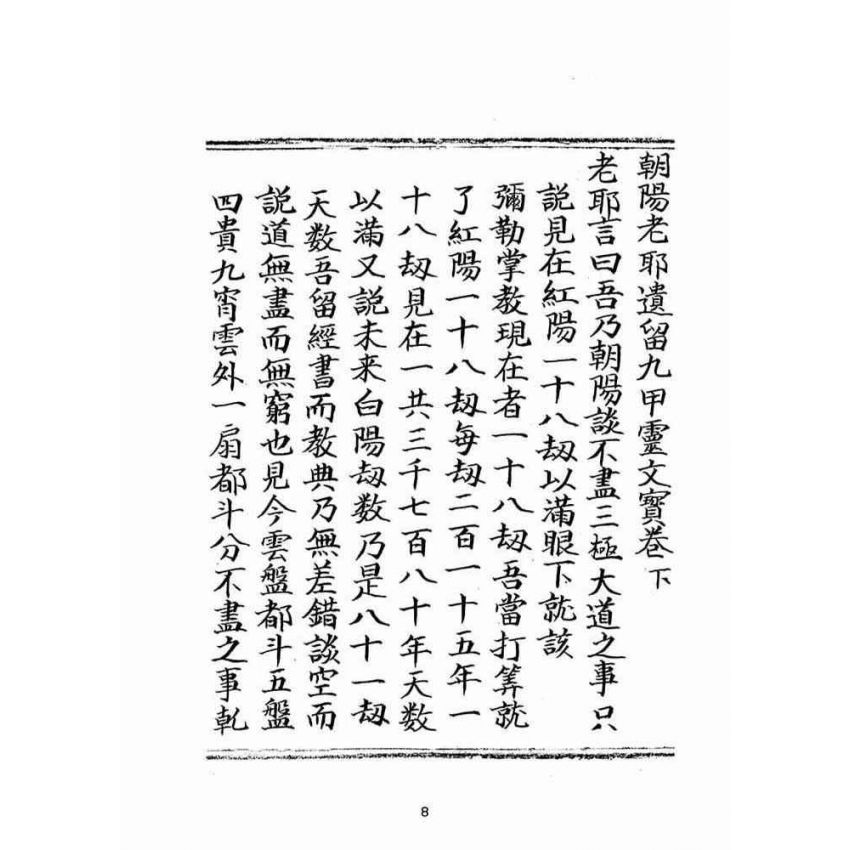 朝陽老耶遺留九甲靈文寳卷下
老耶言曰吾乃朝陽談不盡三極大道之事只
説見在紅陽一十八刼以滿眼下就該
彌勒掌教現在者一十八刼吾當打筭就
了紅陽一十八刼每刼二百一十五年一
十八刼見在一共三千七百八十年天数
以滿又説未来白陽刼数乃是八十一刼
天数吾留經書而教典乃無差錯談空而
説道無盡而無窮也見今雲盤都斗五盤
四貴九霄雲外一扇都斗分不盡之事乹
8